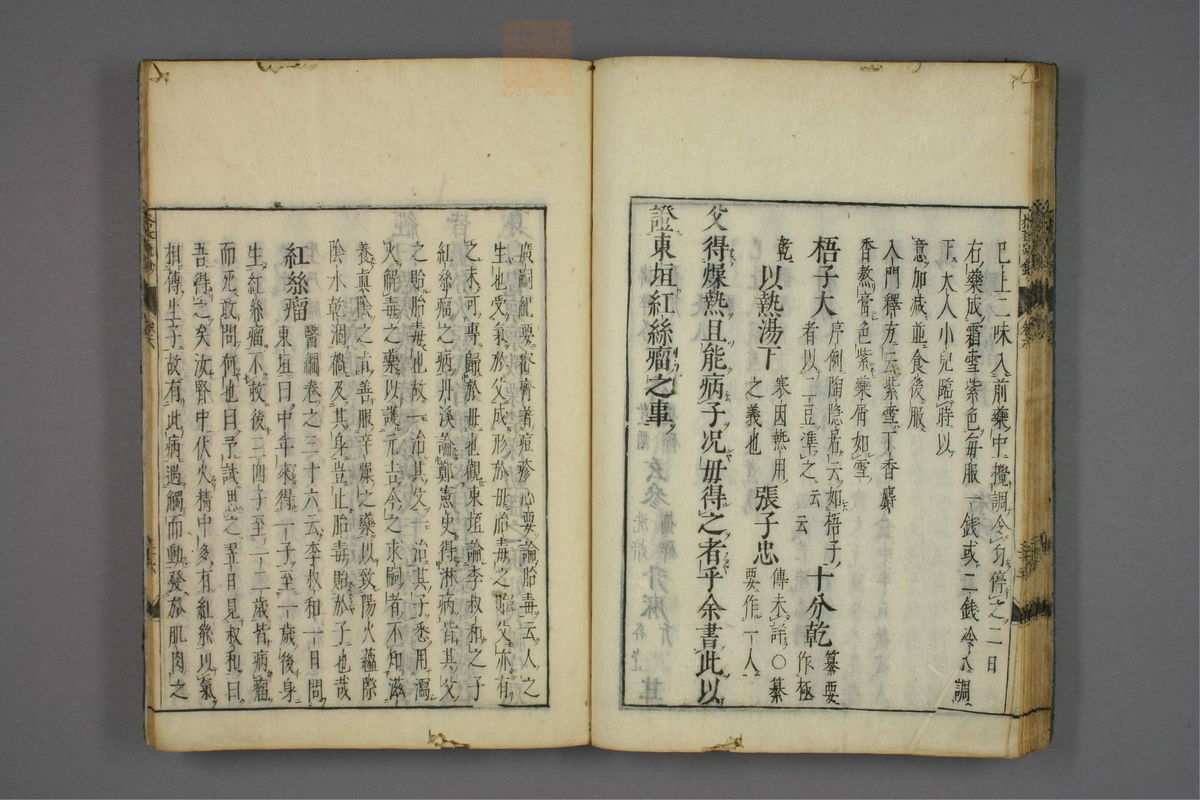 已上二味入前藥中攪調令勻停之二日
右藥成霜雪紫色每服一錢或二錢冷水調
下大人小兒臨時以
意加減並食後服
入門釋方云紫雪丁香麝
香熬膏色紫藥屑如雪
梧子大 序例陶隱居云如梧子 十分乾 纂要
者以二豆準之云云 作極
乾 以熱湯下 寒因熱用 張子忠 傳未詳○纂
之義也 要作一人
父得燥熱且能病子况毋得之者乎余書此以
證東垣紅絲瘤之事
廣嗣紀要密齋者痘疹心要論胎毒云人之
生也受氣於父成形於毋胎毒之貽父亦有
之未可專歸於毋也觀東垣論李叔和之子
紅絲瘤之病丹溪論鄭憲史得淋病皆其父
之貽胎毒也故一治其父一治其子悉用瀉
火解毒之藥以護元吉今之求嗣者不知滋
養真陰之古善服辛燥之藥以致陽火蘊隆
陰水乾涸禍及其身豈止胎毒貽於子也哉
紅絲瘤 醫綱卷之三十六云李叔和一日問
東垣曰中年來得一子至一歲後身
生紅絲瘤不救後三四子至一二歲皆病瘤
而死敢問何也曰予試思之翌日見叔和曰
吾得之矣汝腎中伏火精中多有紅絲以氣
相傳生子故有此病遇觸而動發於肌肉之